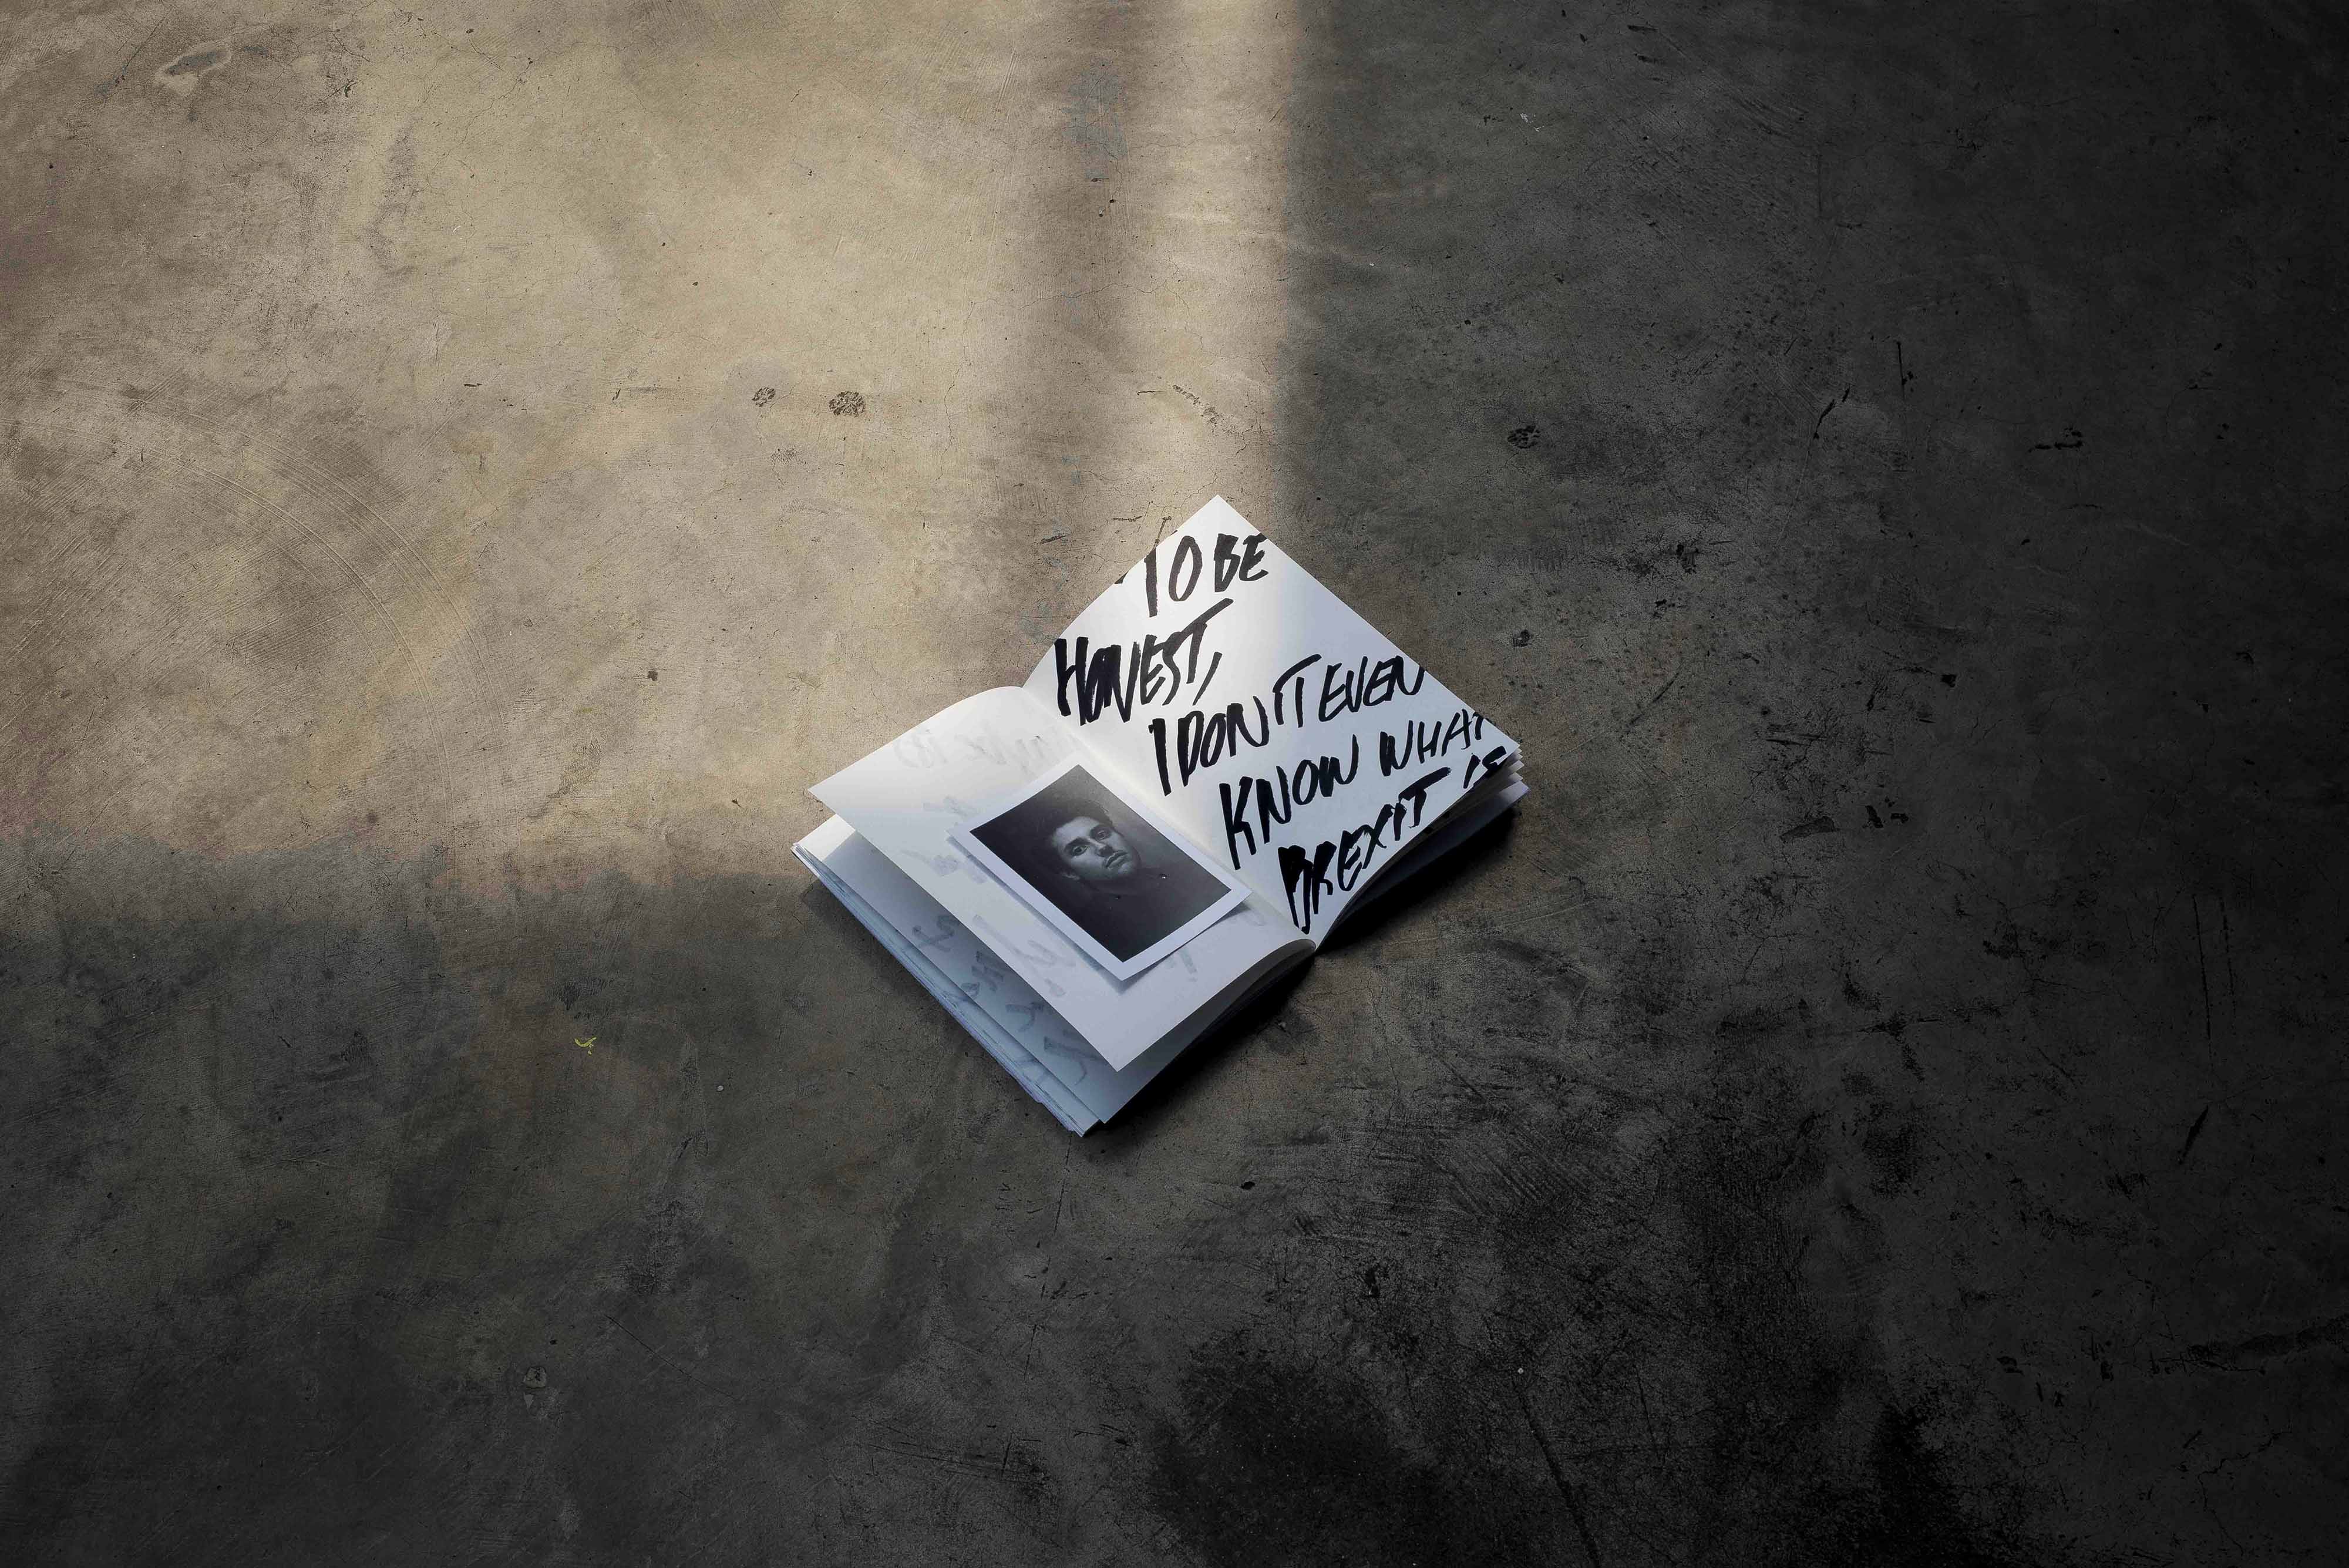 TO BE
HONEST,
I DON'T EVEN
KNOW WHAT
BREXIT IS